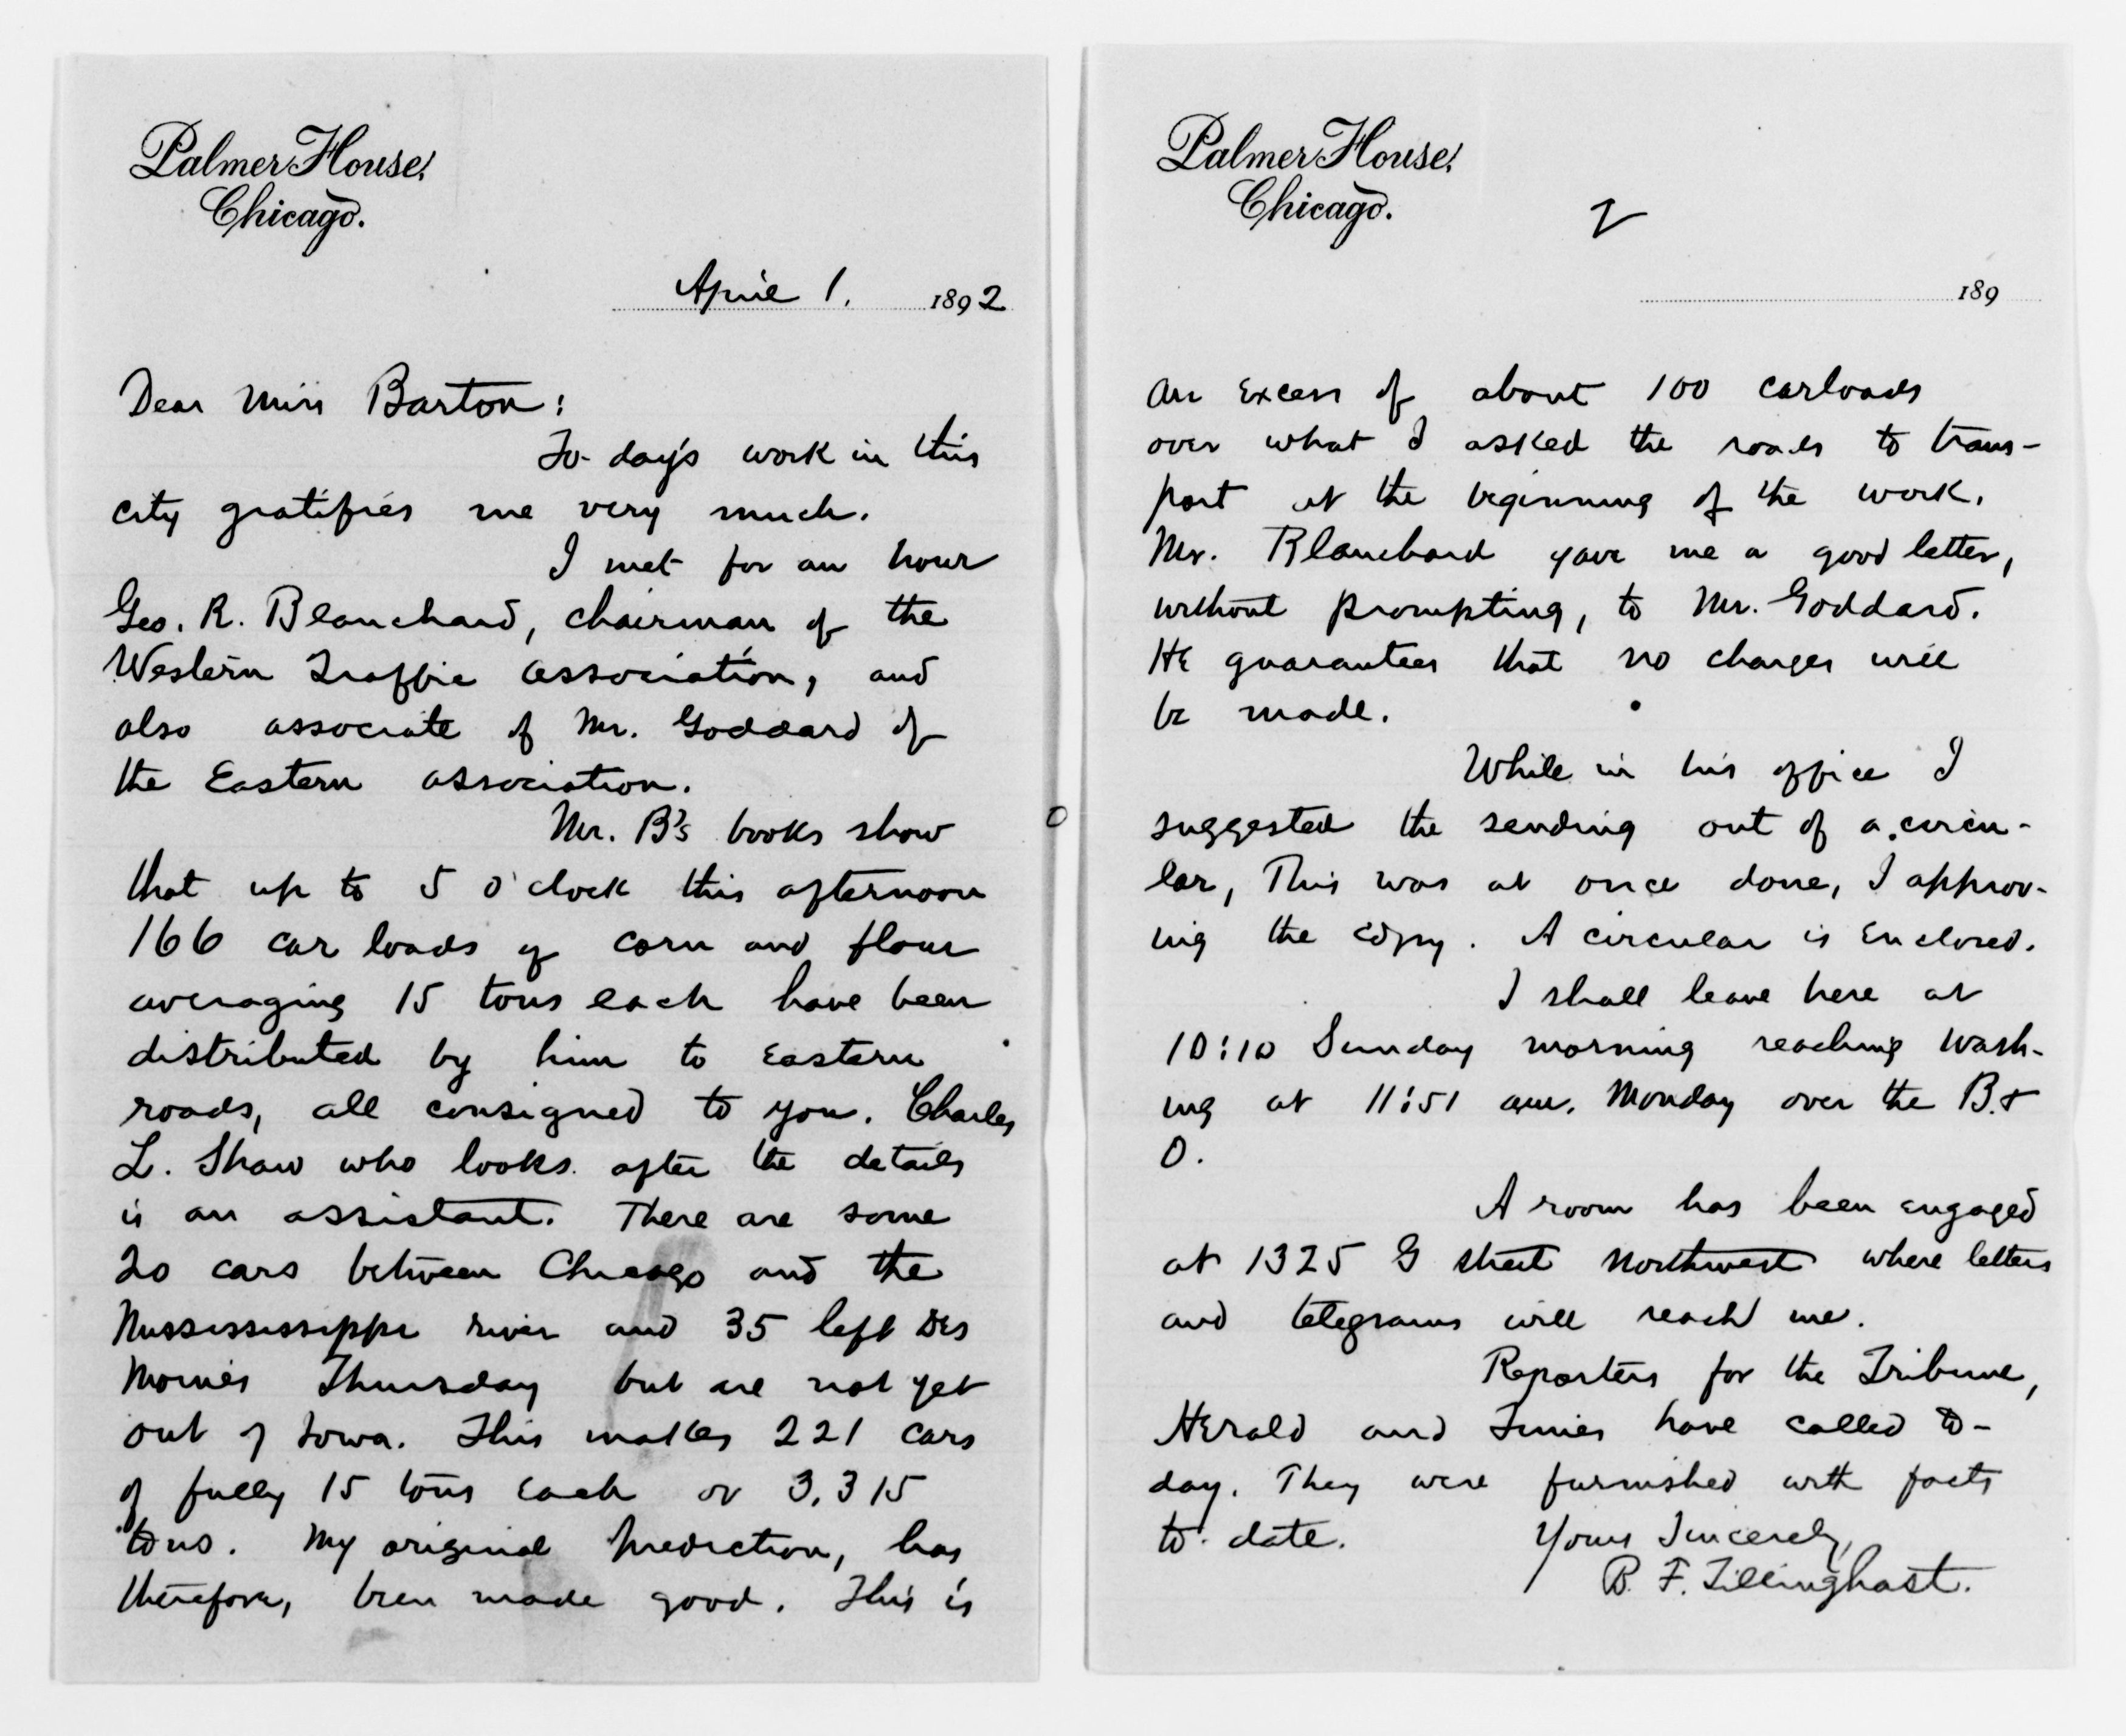 Palmer House,
Chicago.
April 1. 1892
Dear Miss Barton:
To-day's work in this
city gratifies me very much.
I met for an hour
Geo. R. Blanchard, chairman of the
Western Traffic Association, and
also associate of Mr. Goddard of
the Eastern association.
Mr. B's books show
that up to 5 o'clock this afternoon
166 car loads of corn and flour
averaging 15 tons each have been
distributed by him to Eastern
roads, all consigned to you. Charles
L. Shaw who looks after the details
is an assistant. There are some
20 cars between Chicago and the
Mussississippi river and 35 left Des
Moines Thursday but are not yet
out of Iowa. This makes 221 cars
of fully 15 tons each or 3,315
tons. My original prediction, has
therefore, been made good. This is
Palmer House,
Chicago.
2
189
an excess of about 100 carloads
over what I asked the roads to trans-
port at the beginning of the work.
Mr. Blanchard gave me a good letter,
without prompting, to Mr. Goddard.
He guarantees that no charges will
be made.
While in his office I
suggested the sending out of a circu-
lar, This was at once done, I approv-
ing the copy. A circular is enclosed.
I shall leave here at
10:10 Sunday morning reaching Wash-
ing at 11:51 am. Monday over the B. &
O.
A room has been engaged
at 1325 G street Northwest where letters
and telegrams will reach me.
Reporters for the Tribune,
Herald and Times have called to-
day. They were furnished with facts
to date. Yours Sincerely,
B. F. Tillinghast.